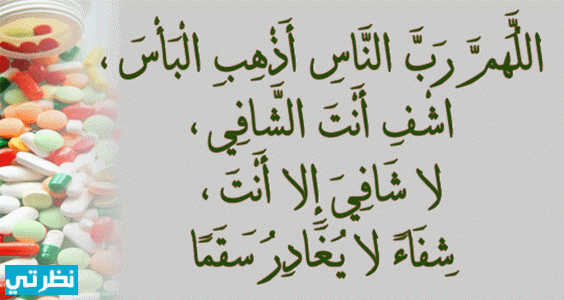 اللَّهمَّ رَبَّ النَّاسِ أَذْهِبِ الْبَأْسَ،
اشْفِ أَنْتَ الشَّافِي،
لا شَافِيَ إِلا أَنْتَ،
شِفَاءً لا يُغَادِرُ سَقَمًا
نظرتي